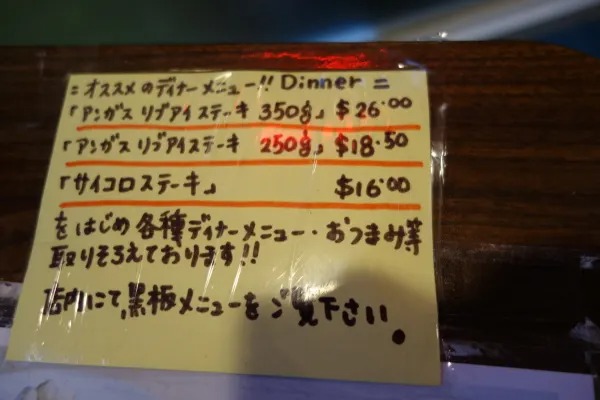 = オススメのディナーメニュー!! Dinner =
「アンガス リブアイステーキ 350g」 $26.00
「アンガス リブアイステーキ 250g」 $18.50
「サイコロステーキ」 $16.00
をはじめ 各種ディナーメニュー・おつまみ等
取りそろえております!!
店内にて、黒板メニューをご覧下さい。